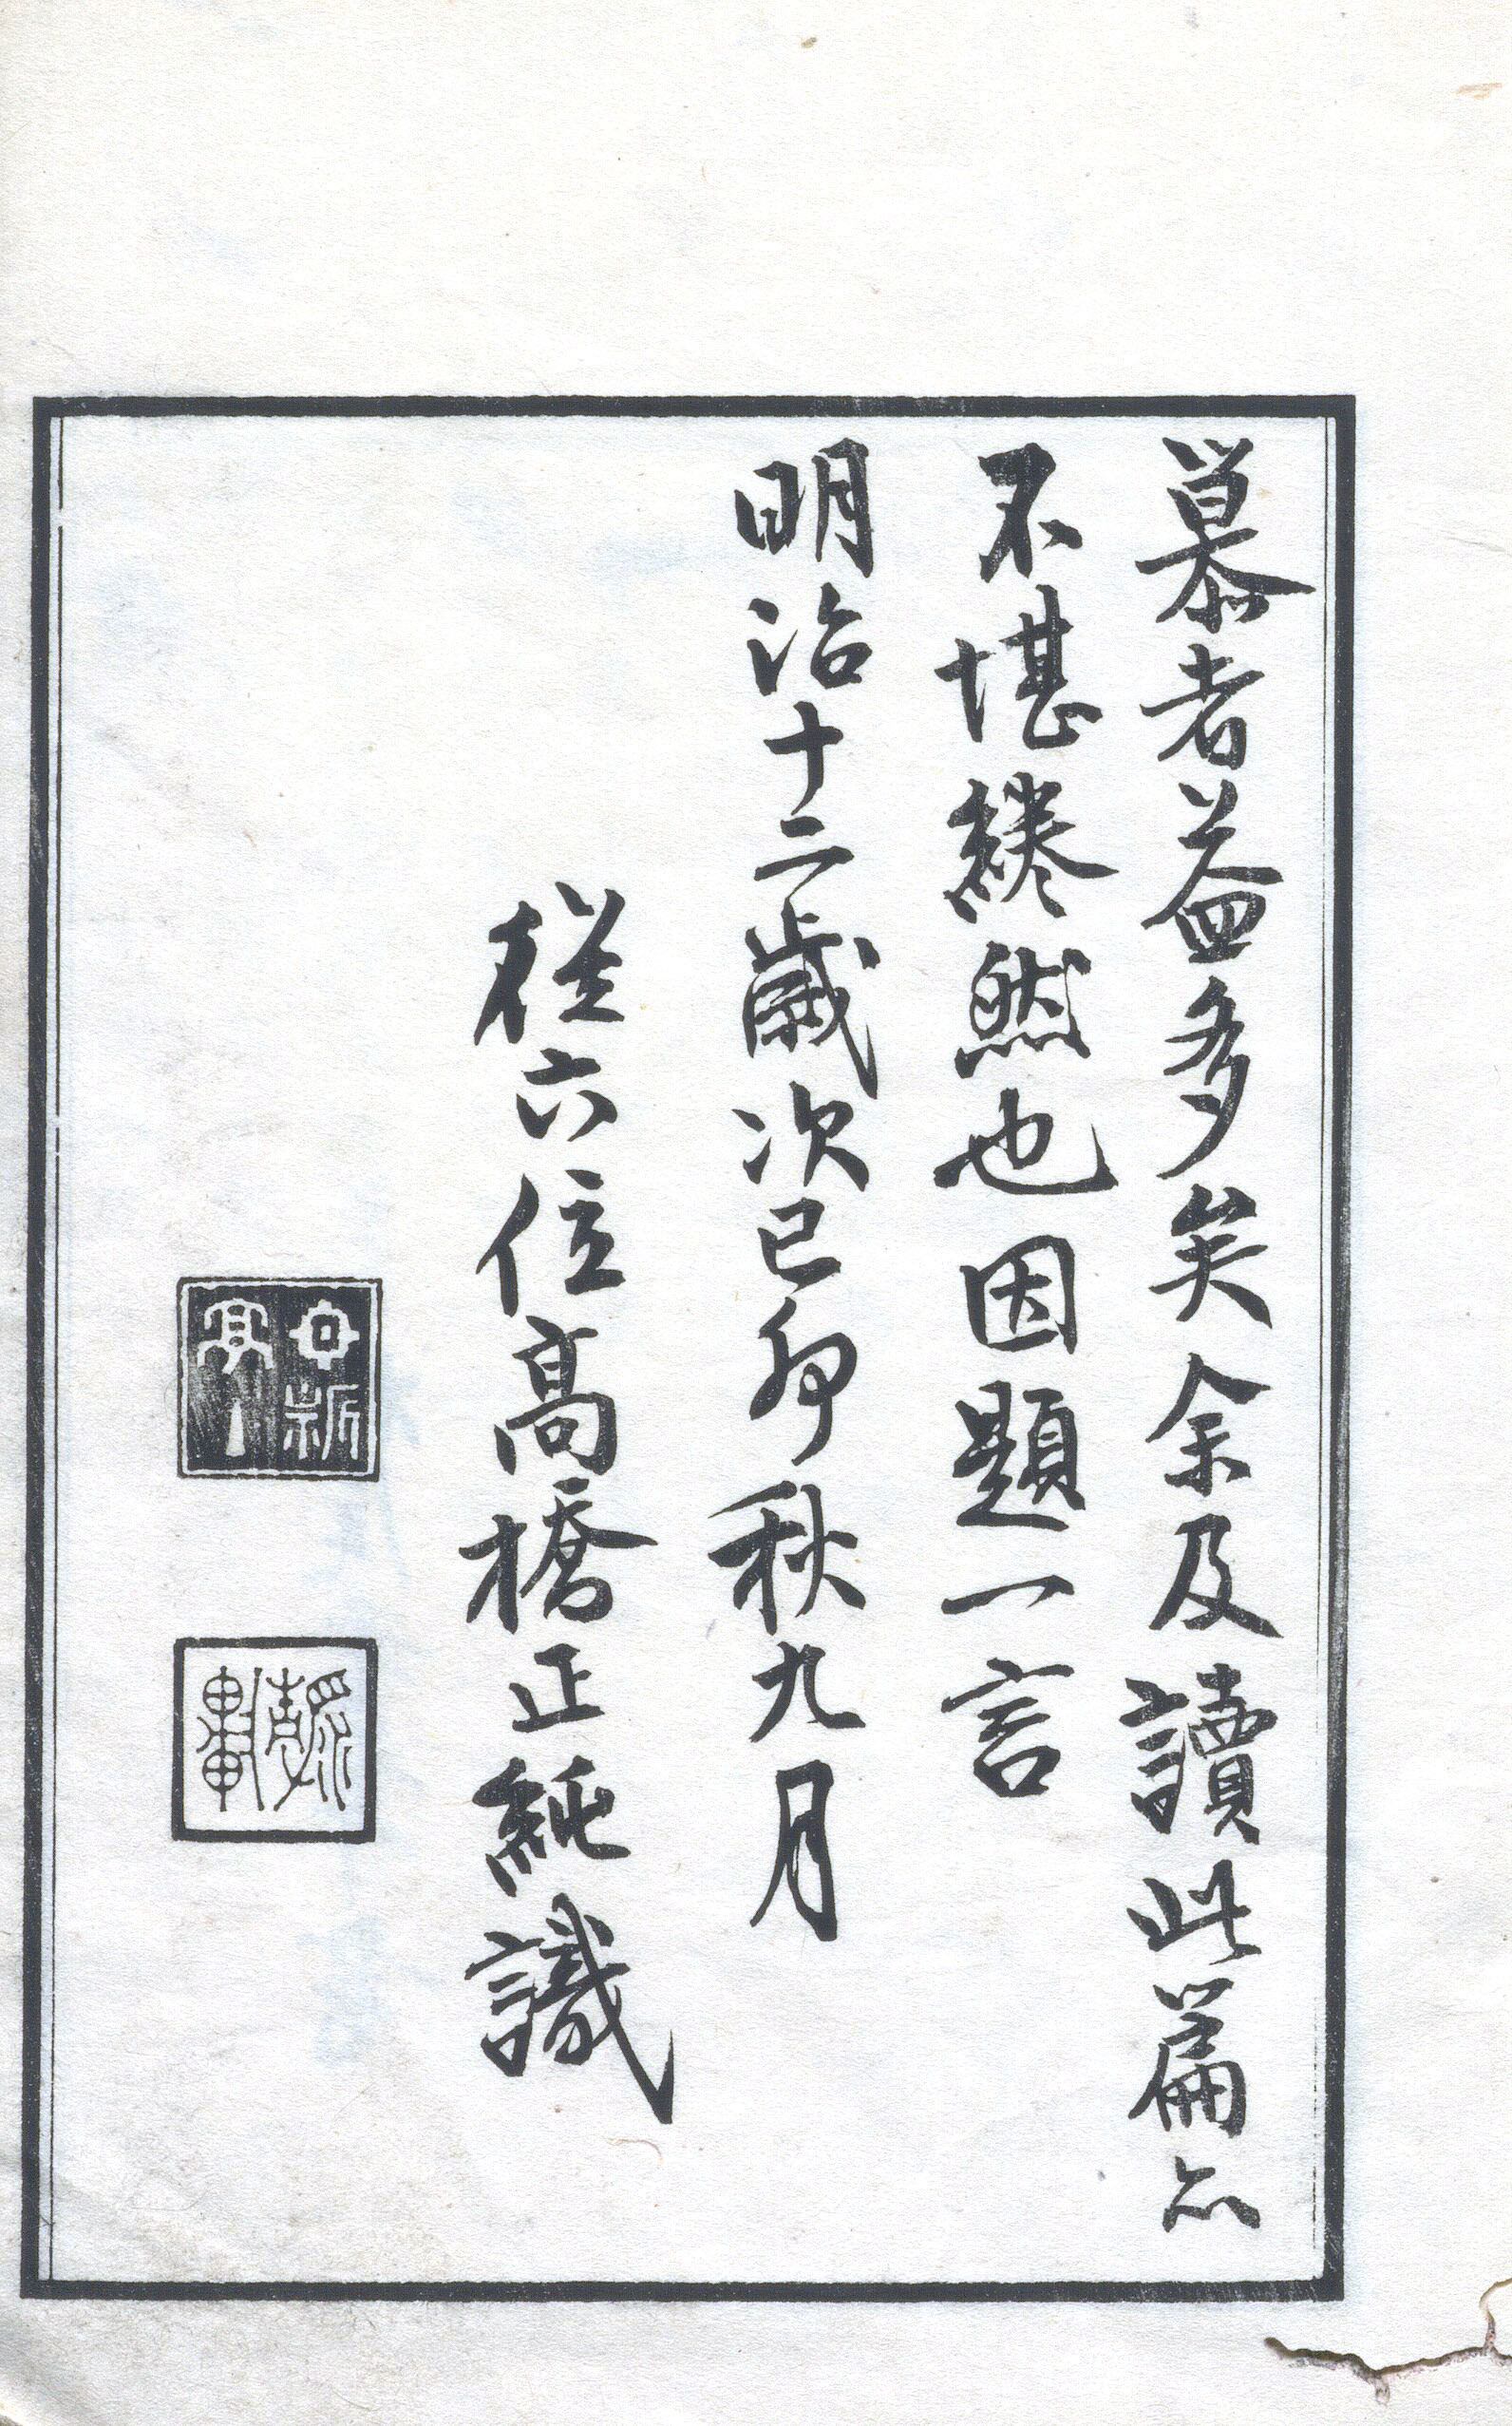 慕者益多矣余及讀此篇亦
不堪綣然也因題一言
明治十二歲次己卯秋九月
從六位高橋正純識